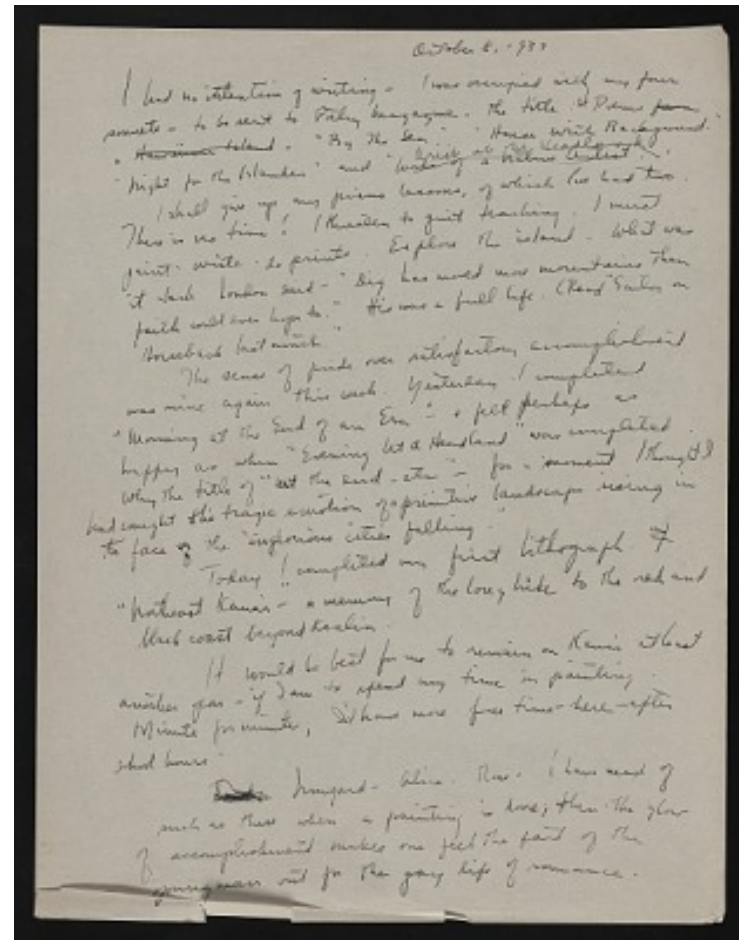 October 8, 1933
I had no intention of writing - I was occupied with my four
sonnets - to be sent to magazine. The title "Poems from
a Hawaiian Island - "By The Sea" "House With Background"
"Night for the Islander" and " of a Native
I shall give up my piano lessons, of which I've had two.
There is no time! I threaten to quit teaching. I must
paint - write - do prints. Explore the island - What was
it Jack London said - "Dig has moved more mountains than
faith ever" His was a full life. (Read "Sailor on
Horseback" last month
The sense of pride over satisfactory accomplishment
was mine again this week. Yesterday I completed
"Morning at the End of an Era" - & felt perhaps as
happy as when "Evening Headland" was completed
Why the title of "at the end - etc" - for a moment I thought I
had caught the tragic emotion of primitive landscape rising in
the face of the "inglorious cities falling"
Today I completed my first lithograph.
"Northeast Kauai - a memory of the long hike to the red and
black coast beyond
It would be best for me to remain on Kauai at least
another year - if I am to spend my time in painting.
Minute for minute, I'd have more free time - here - after
school hours.
Irmgard - Alice - Rose - I have need of
such as these when a painting is done; then the glow
of accomplishment makes one feel the part of the
out for the gay life of romance.